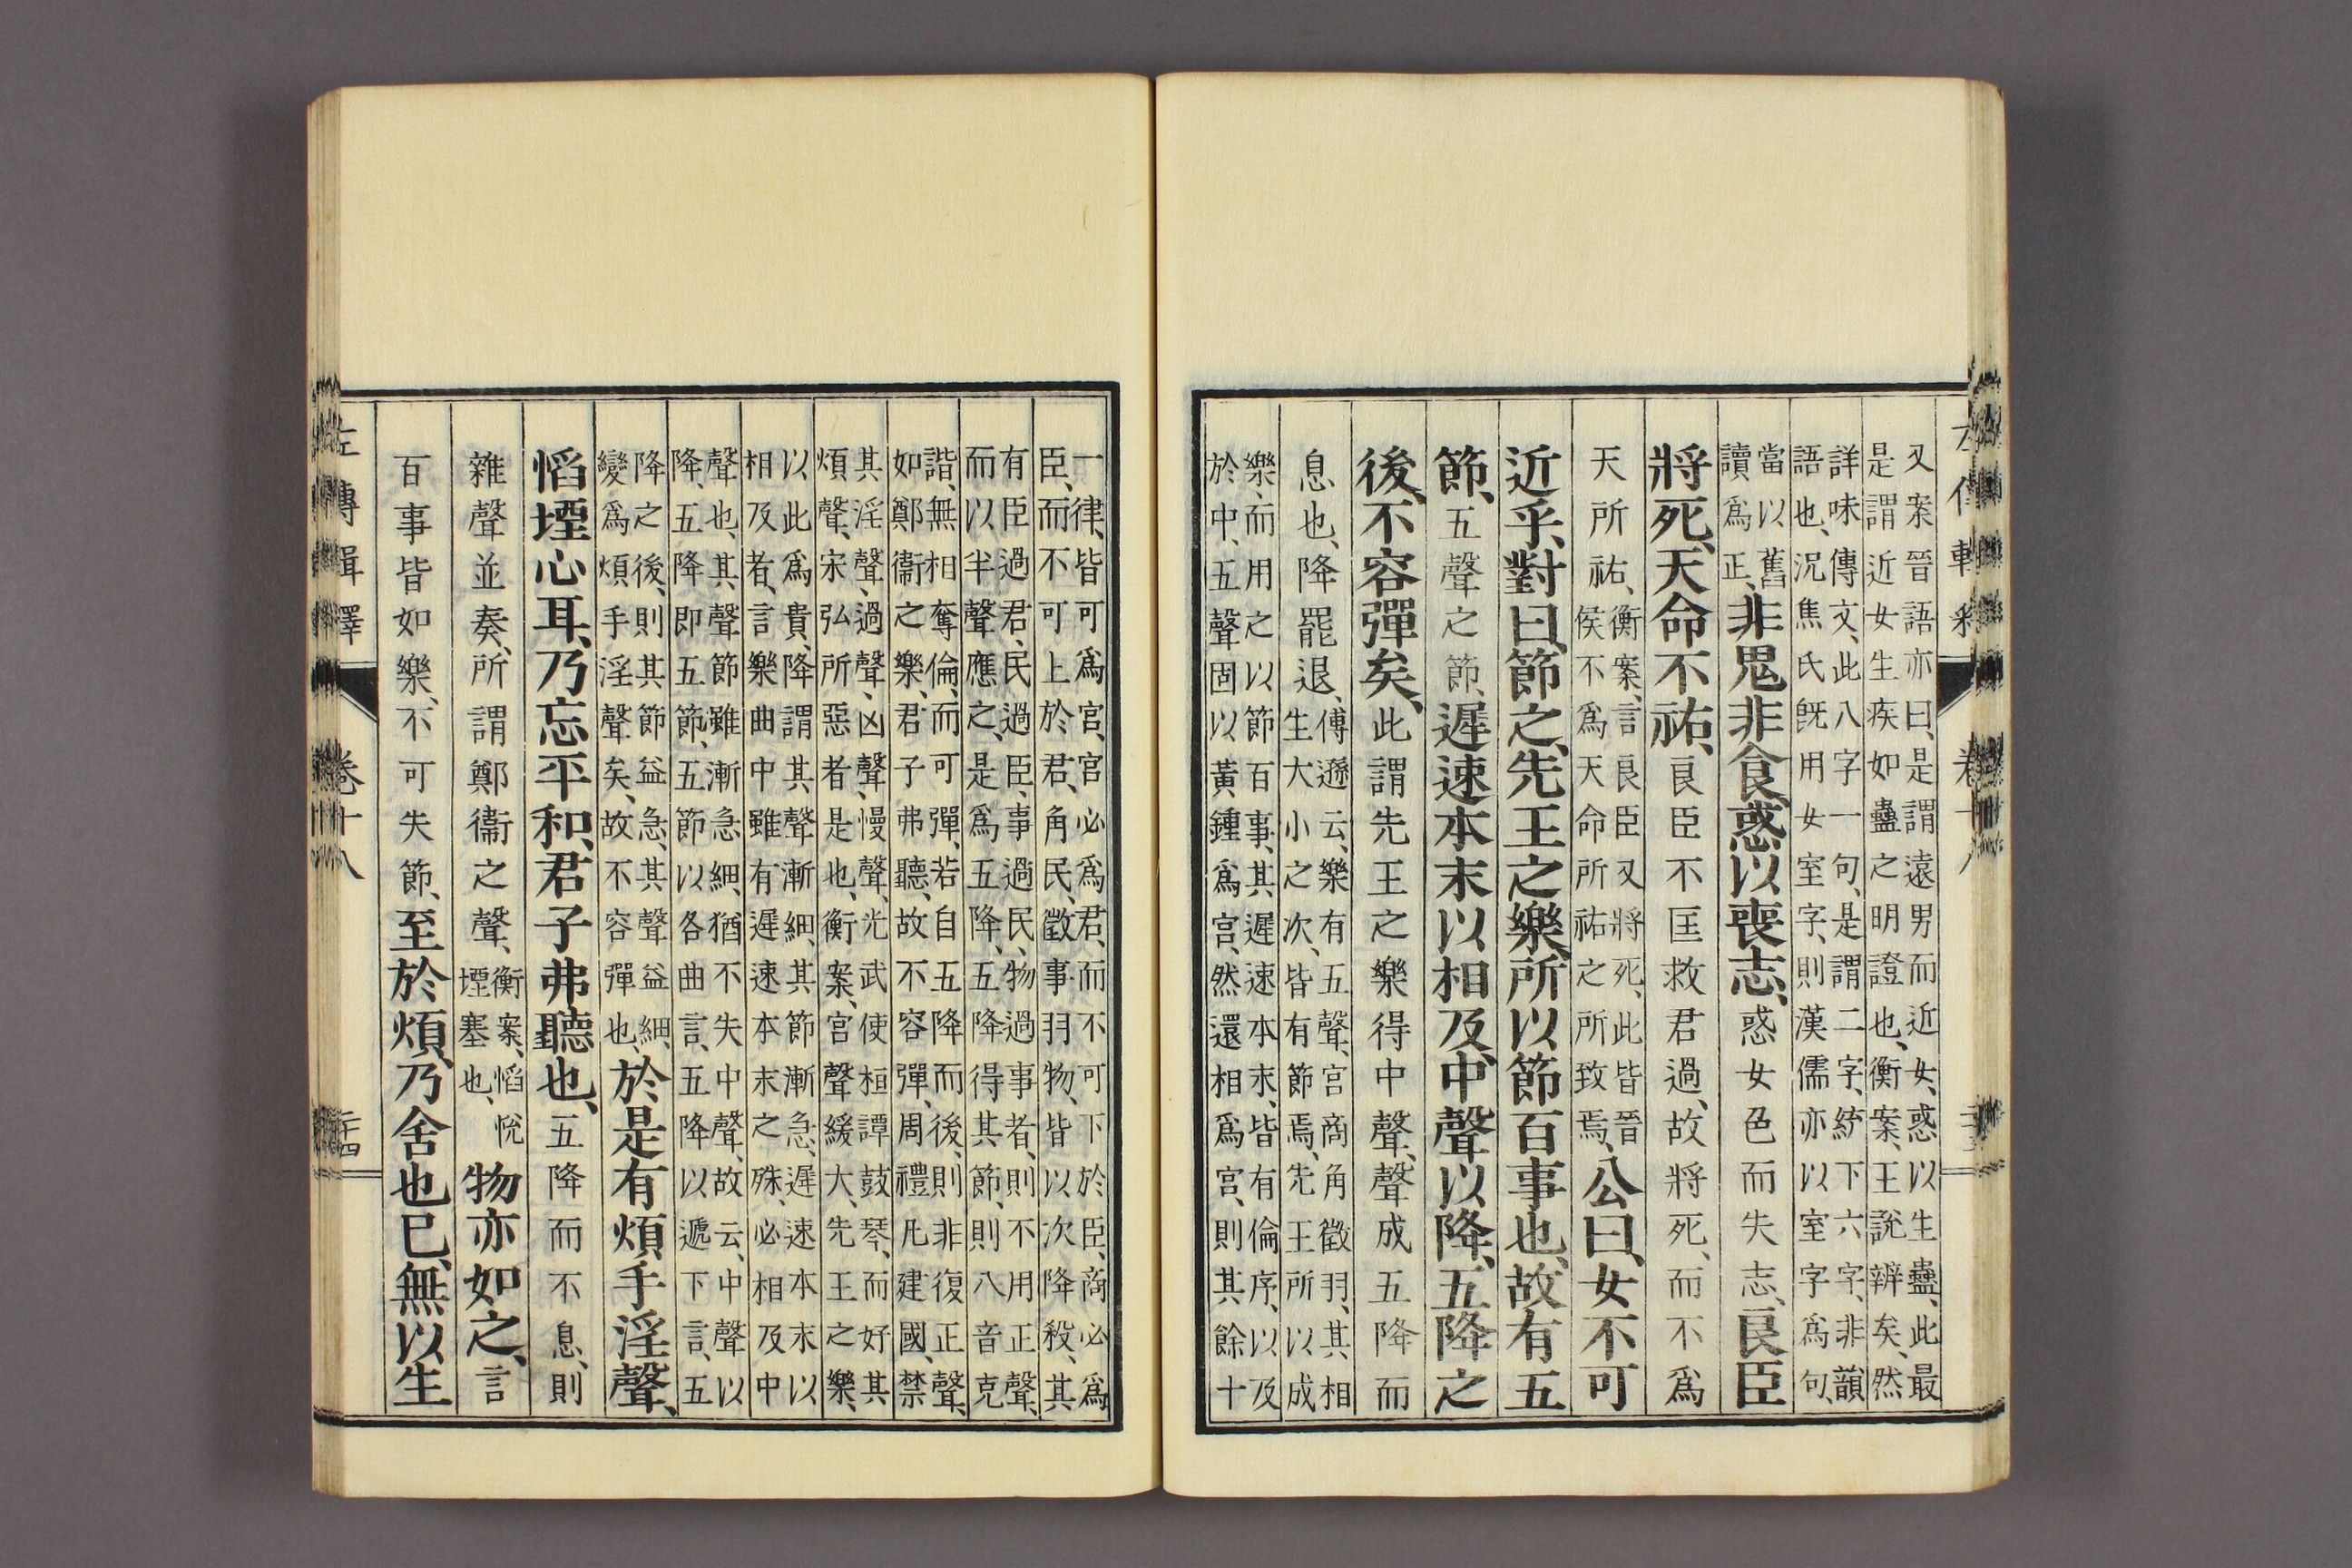 又案晉語亦曰、是謂遠男而近女、惑以生蠱、此最
是謂近女生疾如蠱之明證也、衡案、王說辨矣、然
詳味傳文、此八字一句、是謂二字、統下六字、非韻
語也、況焦氏旣用女室字、則漢儒亦以室字爲句、
當以舊
讀爲正、
非鬼非食、惑以喪志、惑女色而失志、良臣
將死、天命不祐、良臣不匡救君過、故將死、而不爲
天所祐、
衡案、言良臣又將死、此皆晉
侯不爲天命所祐之所致焉、
公曰、女不可
近乎、對曰、節之、先王之樂、所以節百事也、故有五
節、五聲之節、遲速本末以相及、中聲以降、五降之
後、不容彈矣、此謂先王之樂得中聲、聲成五降而
息也、降罷退、
傅遜云、樂有五聲、宮商角徵羽、其相
生大小之次、皆有節焉、先王所以成
樂、而用之以節百事、其遲速本末、皆有倫序、以及
於中、五聲固以黃鍾爲宮、然還相爲宮、則其餘十
一律、皆可爲宮、宮必爲君、而不可下於臣、商必爲
臣、而不可上於君、角民、徵事、羽物、皆以次降殺、其
有臣過君、民過臣、事過民、物過事者、則不用正聲、
而以半聲應之、是爲五降、五降得其節、則八音克
諧、無相奪倫、而可彈、若自五降而後、則非復正聲、
如鄭衞之樂、君子弗聽、故不容彈、周禮凡建國、禁
其淫聲、過聲、凶聲、慢聲、光武使桓譚鼓琴、而好其
煩聲、宋弘所惡者是也、衡案、宮聲緩大、先王之樂、
以此爲貴、降謂其聲漸細、其節漸急、遲速本末以
相及者、言樂曲中雖有遲速本末之殊、必相及中
聲也、其聲節雖漸急細、猶不失中聲、故云、中聲以
降、五降即五節、五節以各曲言、五降以遞下言、五
降之後、則其節益急、其聲益細、
變爲煩手淫聲矣、故不容彈也、
於是有煩手淫聲、
慆堙心耳、乃忘平和、君子弗聽也、五降而不息、則
雜聲並奏、所謂鄭衞之聲、
衡案、慆悅
堙塞也、
物亦如之、言
百事皆如樂、不可失節、至於煩、乃舍也已、無以生
左傳輯釋
卷十八
二十四